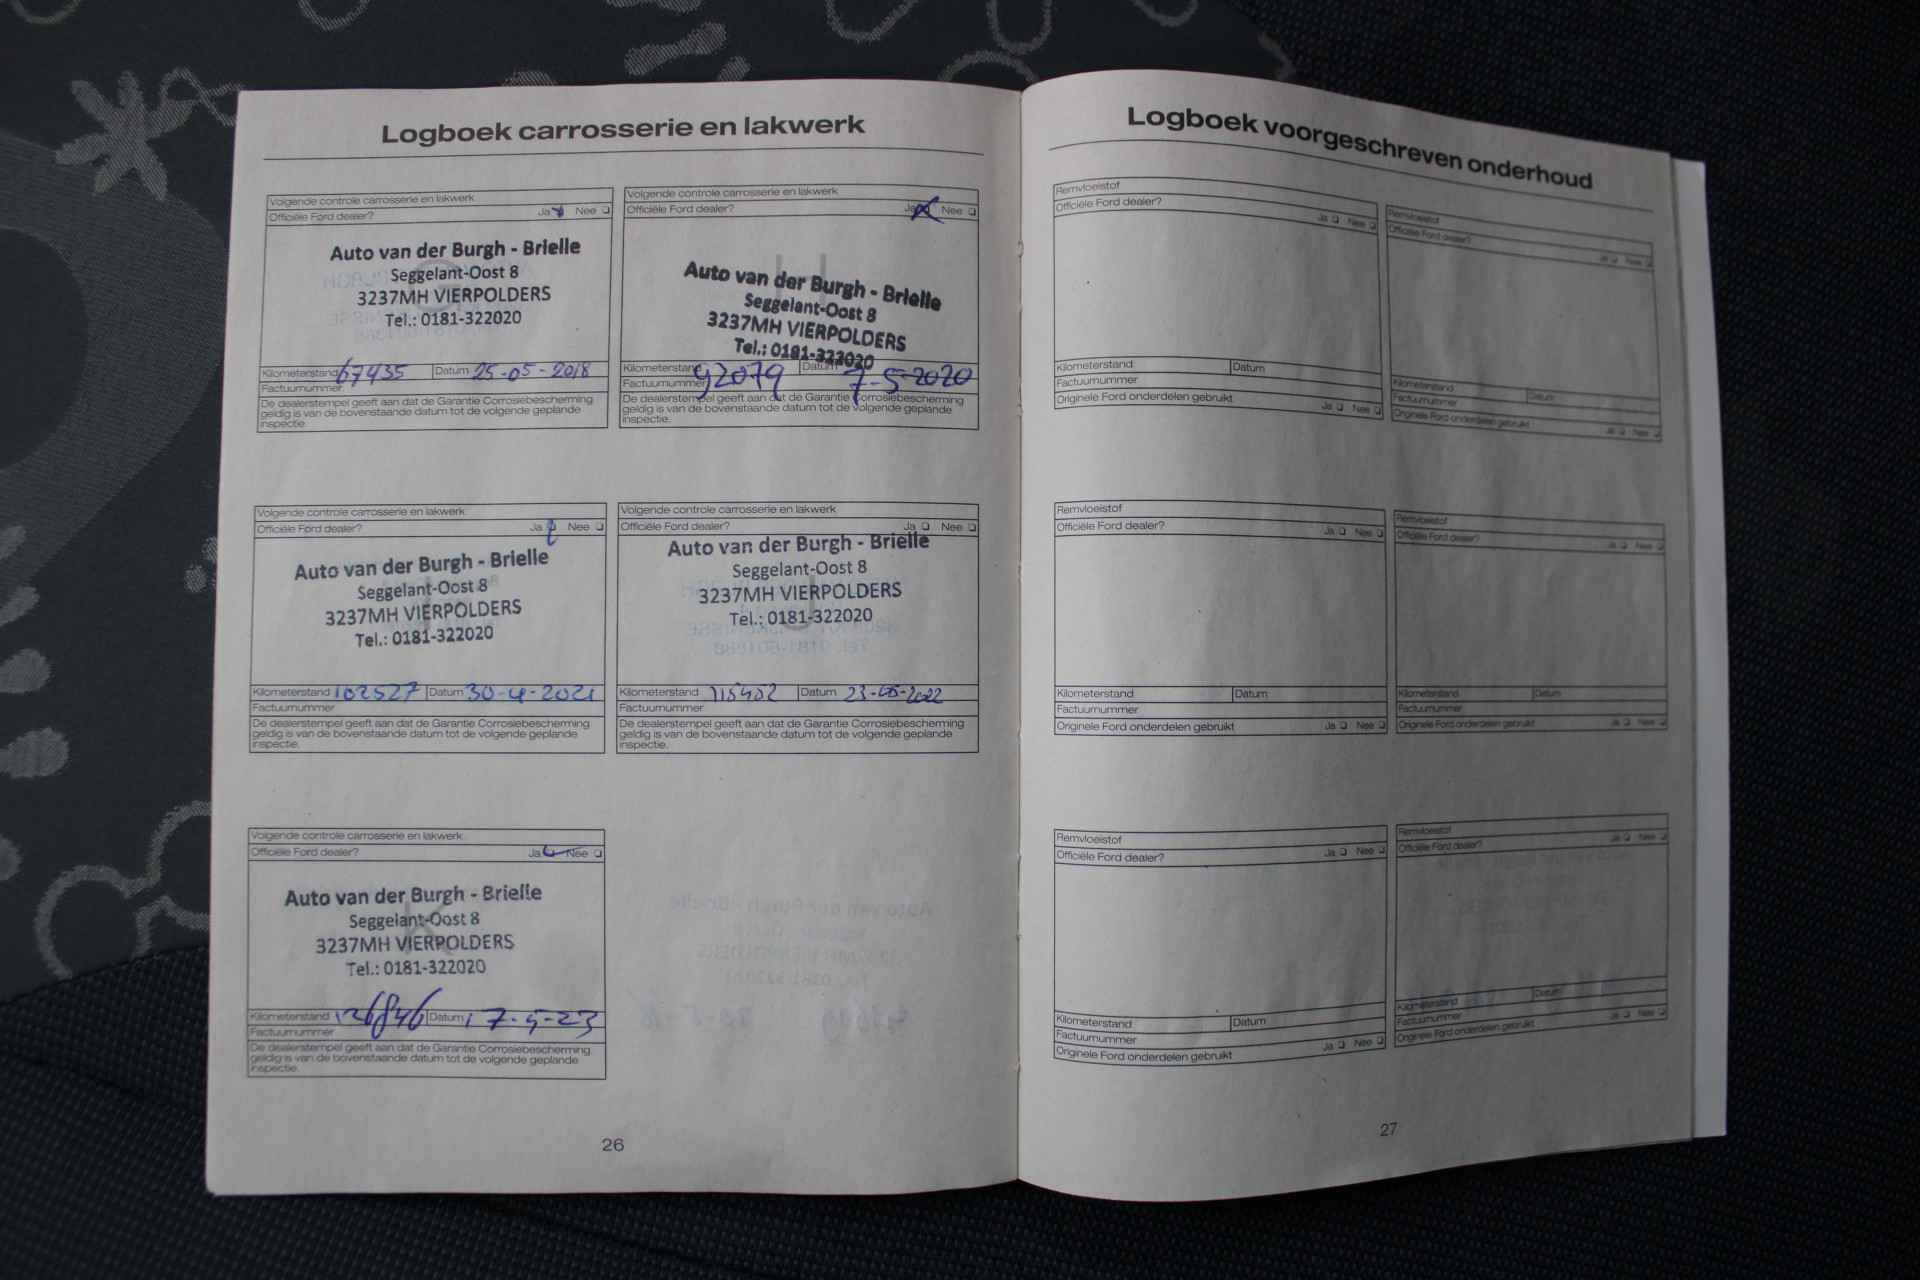 Logboek carrosserie en lakwerk
Volgende controle carrosserie en lakwerk
Officiële Ford dealer? Ja Nee
Auto van der Burgh - Brielle
Seggelant-Oost 8
3237MH VIERPOLDERS
Tel.: 0181-322020
Kilometerstand 67435 Datum 25-05-2018
Factuurnummer
De dealerstempel geeft aan dat de Garantie Corrosiebescherming
geldig is van de bovenstaande datum tot de volgende geplande
inspectie.
Volgende controle carrosserie en lakwerk
Officiële Ford dealer? Ja Nee
Auto van der Burgh - Brielle
Seggelant-Oost 8
3237MH VIERPOLDERS
Tel.: 0181-322020
Kilometerstand 92079 Datum 7-5-2020
Factuurnummer
De dealerstempel geeft aan dat de Garantie Corrosiebescherming
geldig is van de bovenstaande datum tot de volgende geplande
inspectie.
Volgende controle carrosserie en lakwerk
Officiële Ford dealer? Ja Nee
Auto van der Burgh - Brielle
Seggelant-Oost 8
3237MH VIERPOLDERS
Tel.: 0181-322020
Kilometerstand 102527 Datum 30-4-2021
Factuurnummer
De dealerstempel geeft aan dat de Garantie Corrosiebescherming
geldig is van de bovenstaande datum tot de volgende geplande
inspectie.
Volgende controle carrosserie en lakwerk
Officiële Ford dealer? Ja Nee
Auto van der Burgh - Brielle
Seggelant-Oost 8
3237MH VIERPOLDERS
Tel.: 0181-322020
Kilometerstand 115452 Datum 23-05-2022
Factuurnummer
De dealerstempel geeft aan dat de Garantie Corrosiebescherming
geldig is van de bovenstaande datum tot de volgende geplande
inspectie.
Volgende controle carrosserie en lakwerk
Officiële Ford dealer? Ja Nee
Auto van der Burgh - Brielle
Seggelant-Oost 8
3237MH VIERPOLDERS
Tel.: 0181-322020
Kilometerstand 126846 Datum 17-5-23
Factuurnummer
De dealerstempel geeft aan dat de Garantie Corrosiebescherming
geldig is van de bovenstaande datum tot de volgende geplande
inspectie.
26
Logboek voorgeschreven onderhoud
Remvloeistof
Officiële Ford dealer?
Ja Nee
Kilometerstand Datum
Factuurnummer
Originele Ford onderdelen gebruikt
Ja Nee
Remvloeistof
Officiële Ford dealer?
Ja Nee
Kilometerstand Datum
Factuurnummer
Originele Ford onderdelen gebruikt
Ja Nee
Remvloeistof
Officiële Ford dealer? Ja Nee
Kilometerstand Datum
Factuurnummer
Originele Ford onderdelen gebruikt Ja Nee
Remvloeistof
Officiële Ford dealer? Ja Nee
Kilometerstand Datum
Factuurnummer
Originele Ford onderdelen gebruikt Ja Nee
Remvloeistof
Officiële Ford dealer? Ja Nee
Kilometerstand Datum
Factuurnummer
Originele Ford onderdelen gebruikt Ja Nee
Remvloeistof
Officiële Ford dealer? Ja Nee
Kilometerstand Datum
Factuurnummer
Originele Ford onderdelen gebruikt Ja Nee
27